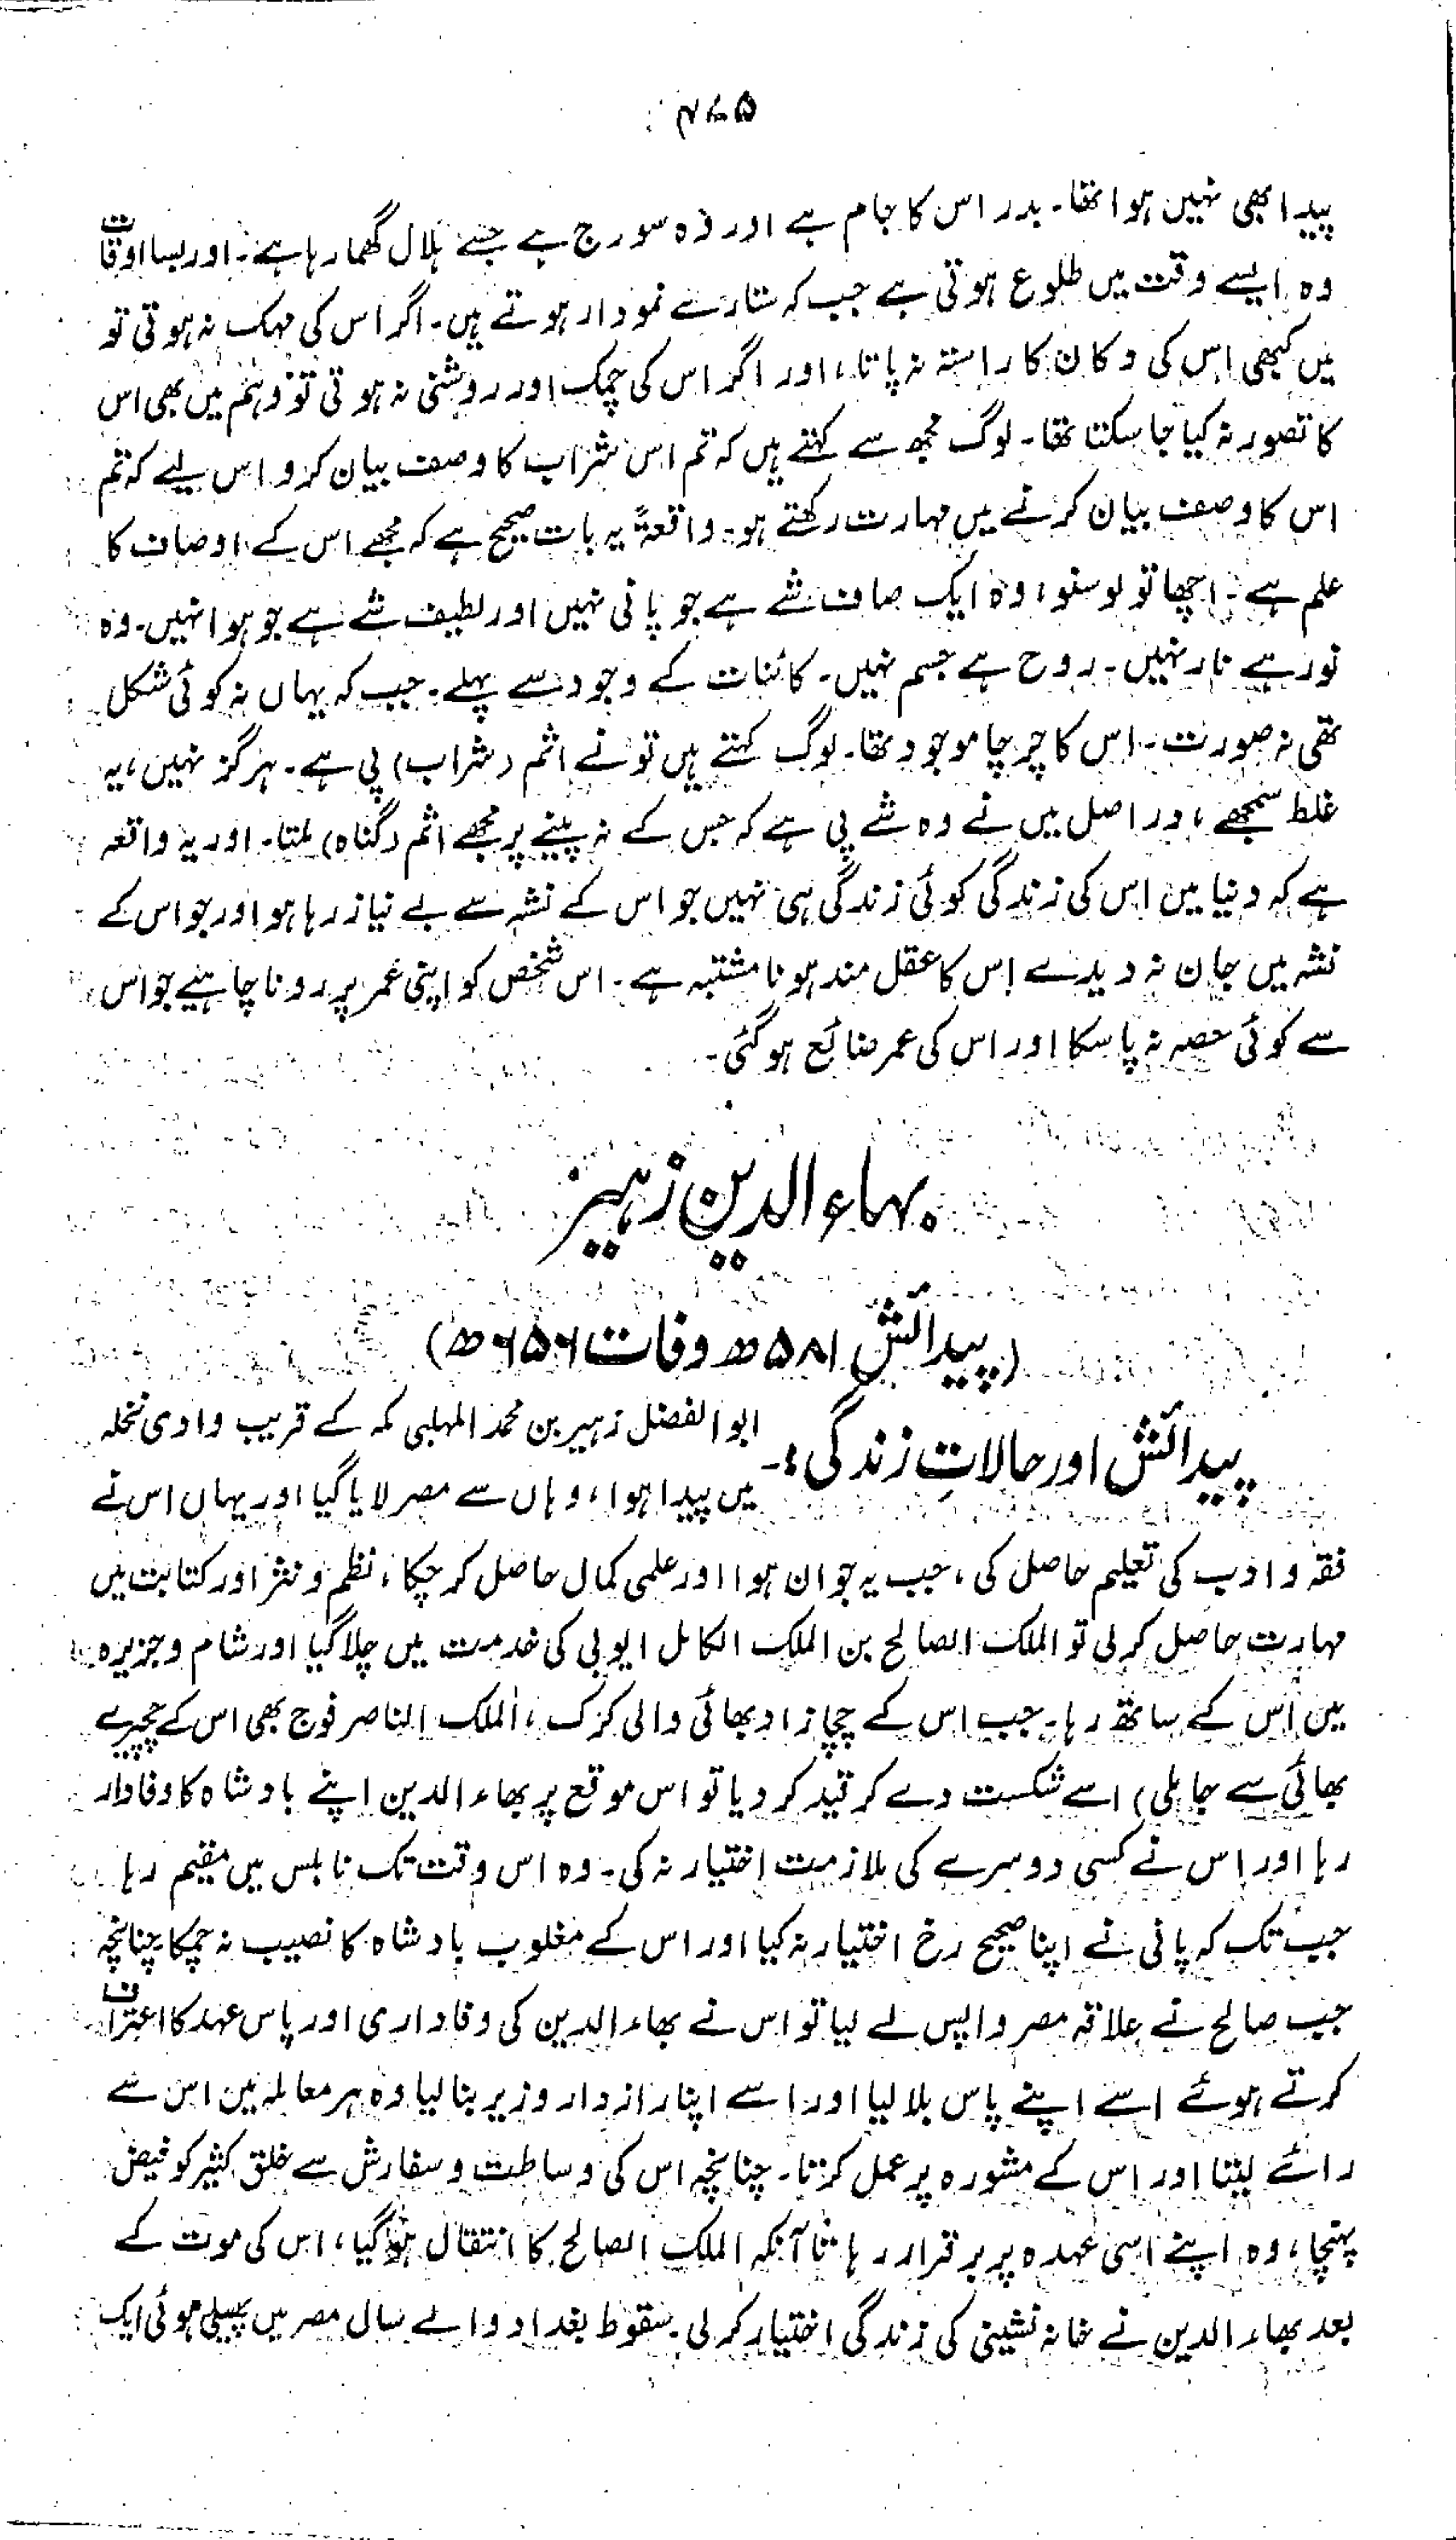 ۴۷۵
پیدا بھی نہیں ہوا تھا۔ بدر اس کا جام ہے اور وہ سورج ہے جسے ہلال گھما رہا ہے۔ اور بسا اوقات
وہ ایسے وقت میں طلوع ہوتی ہے جب کہ ستارے نمودار ہوتے ہیں۔ اگر اس کی مہک نہ ہوتی تو
میں کبھی اس کی دکان کا راستہ نہ پاتا، اور اگر اس کی چمک اور روشنی نہ ہوتی تو وہم میں بھی اس
کا تصور نہ کیا جا سکتا تھا۔ لوگ مجھ سے کہتے ہیں کہ تم اس شراب کا وصف بیان کرو اس لیے کہ تم
اس کا وصف بیان کرنے میں مہارت رکھتے ہو۔ واقعۃً یہ بات صحیح ہے کہ مجھے اس کے اوصاف کا
علم ہے۔ اچھا تو لو سنو، وہ ایک صاف شے ہے جو پانی نہیں اور لطیف شے ہے جو ہوا نہیں۔ وہ
نور ہے نار نہیں۔ روح ہے جسم نہیں۔ کائنات کے وجود سے پہلے۔ جب کہ یہاں نہ کوئی شکل
تھی نہ صورت۔ اس کا چرچا موجود تھا۔ لوگ کہتے ہیں تو نے اثم (شراب) پی ہے۔ ہرگز نہیں، یہ
غلط سمجھے، دراصل میں نے وہ شے پی ہے کہ جس کے نہ پینے پر مجھے اثم (گناہ) ملتا۔ اور یہ واقعہ
ہے کہ دنیا میں اس کی زندگی کوئی زندگی ہی نہیں جو اس کے نشہ سے بے نیاز رہا ہو اور جو اس کے
نشہ میں جان نہ دیدے اس کا عقل مند ہونا مشتبہ ہے۔ اس شخص کو اپنی عمر پر رونا چاہیے جو اس
سے کوئی حصہ نہ پا سکا اور اس کی عمر ضائع ہو گئی۔
بہاء الدین زہیر
(پیدائش ۵۸۱ھ وفات ۶۵۶ھ)
پیدائش اور حالاتِ زندگی:۔ ابوالفضل زہیر بن محمد المہلبی مکہ کے قریب وادی نخلہ
میں پیدا ہوا، وہاں سے مصر لایا گیا اور یہاں اس نے
فقہ و ادب کی تعلیم حاصل کی، جب یہ جوان ہوا اور علمی کمال حاصل کر چکا، نظم و نثر اور کتابت میں
مہارت حاصل کر لی تو الملک الصالح بن الملک الکامل ایوبی کی خدمت میں چلا گیا اور شام و جزیرہ
میں اس کے ساتھ رہا۔ جب اس کے چچا زاد بھائی والی کرک، الملک الناصر فوج بھی اس کے چچیرے
بھائی سے جا ملی) اسے شکست دے کر قید کر دیا تو اس موقع پر بھاء الدین اپنے بادشاہ کا وفادار
رہا اور اس نے کسی دوسرے کی ملازمت اختیار نہ کی۔ وہ اس وقت تک نابلس میں مقیم رہا
جب تک کہ پانی نے اپنا صحیح رخ اختیار نہ کیا اور اس کے مغلوب بادشاہ کا نصیب نہ چمکا چنانچہ
جب صالح نے علاقہ مصر واپس لے لیا تو اس نے بھاء الدین کی وفاداری اور پاس عہد کا اعتراف
کرتے ہوئے اسے اپنے پاس بلا لیا اور اسے اپنا رازدار وزیر بنا لیا وہ ہر معاملہ میں اس سے
رائے لیتا اور اس کے مشورہ پر عمل کرتا۔ چنانچہ اس کی وساطت و سفارش سے خلق کثیر کو فیض
پہنچا، وہ اپنے اسی عہدہ پر برقرار رہا تا آنکہ الملک الصالح کا انتقال ہو گیا، اس کی موت کے
بعد بھاء الدین نے خانہ نشینی کی زندگی اختیار کر لی۔ سقوط بغداد والے سال مصر میں پھیلی ہوئی ایک